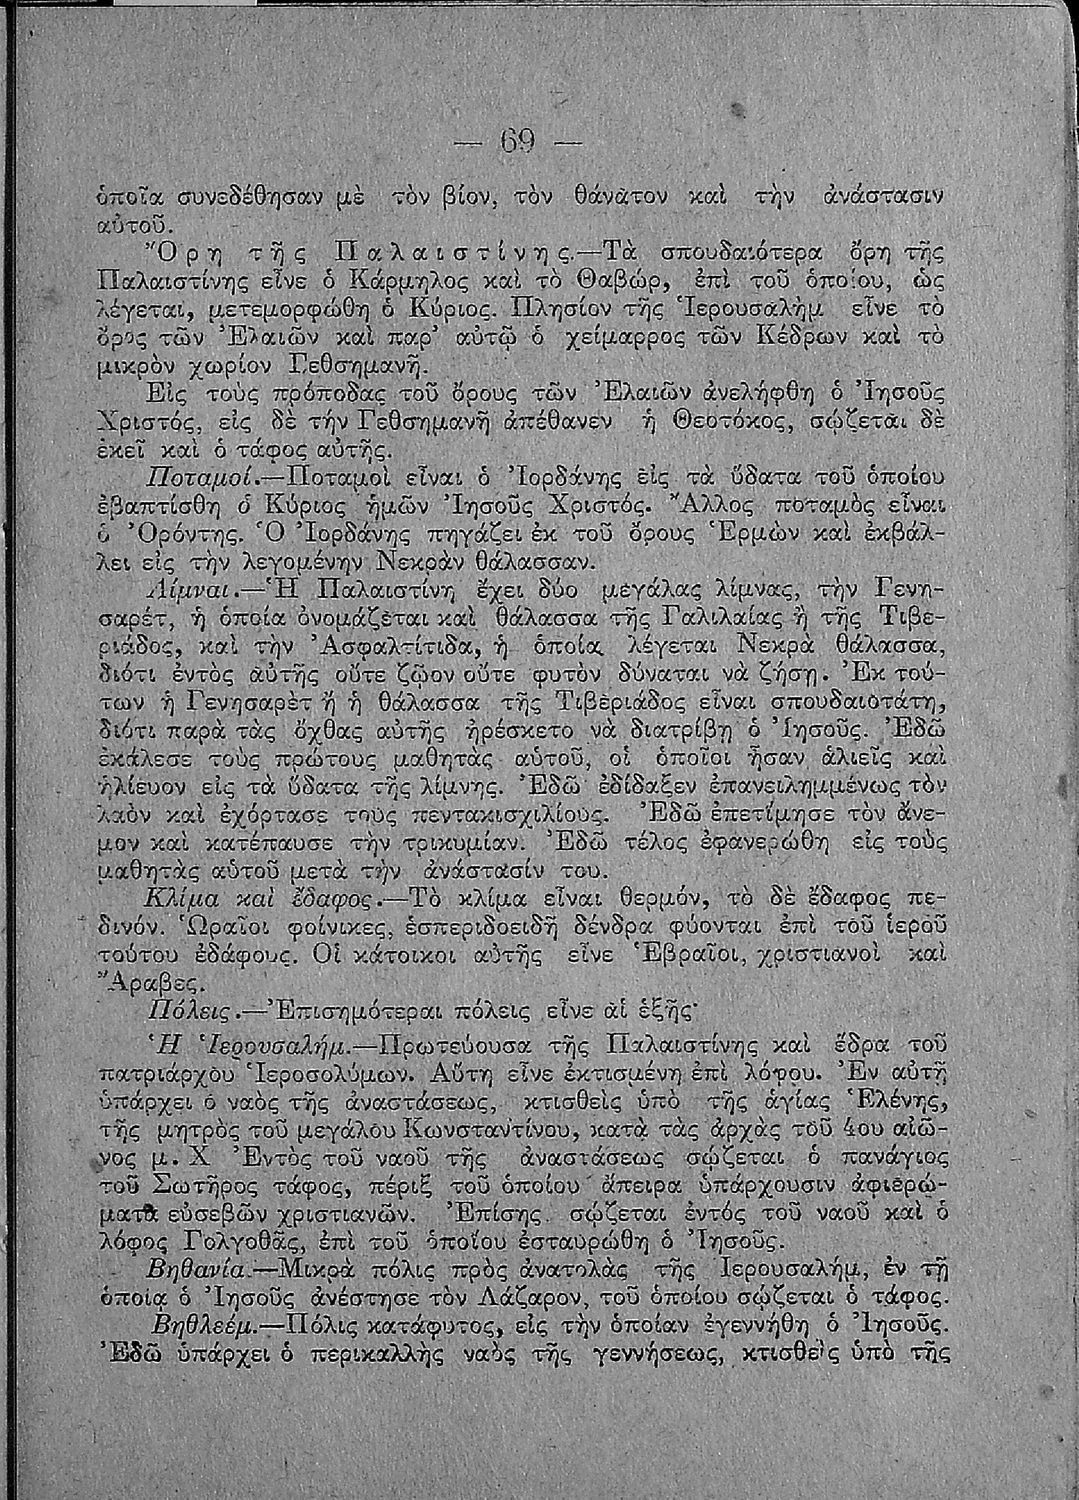 — 69 —
ὁποῖα συνεδέθησαν μὲ τὸν βίον, τὸν θάνατον καὶ τὴν ἀνάστασιν
αὐτοῦ.
Ὄρη τῆς Παλαιστίνης.—Τὰ σπουδαιότερα ὄρη τῆς
Παλαιστίνης εἶνε ὁ Κάρμηλος καὶ τὸ Θαβώρ, ἐπὶ τοῦ ὁποίου, ὡς
λέγεται, μετεμορφώθη ὁ Κύριος. Πλησίον τῆς Ἱερουσαλὴμ εἶνε τὸ
ὄρος τῶν Ἐλαιῶν καὶ παρ' αὐτῷ ὁ χείμαρρος τῶν Κέδρων καὶ τὸ
μικρὸν χωρίον Γεθσημανῆ.
Εἰς τοὺς πρόποδας τοῦ ὄρους τῶν Ἐλαιῶν ἀνελήφθη ὁ Ἰησοῦς
Χριστός, εἰς δὲ τήν Γεθσημανῆ ἀπέθανεν ἡ Θεοτόκος, σῴζεται δὲ
ἐκεῖ καὶ ὁ τάφος αὐτῆς.
Ποταμοί.—Ποταμοὶ εἶναι ὁ Ἰορδάνης εἰς τὰ ὕδατα τοῦ ὁποίου
ἐβαπτίσθη ὁ Κύριος ἡμῶν Ἰησοῦς Χριστός. Ἄλλος ποταμὸς εἶναι
ὁ Ὀρόντης. Ὁ Ἰορδάνης πηγάζει ἐκ τοῦ ὄρους Ἑρμὼν καὶ ἐκβάλ-
λει εἰς τὴν λεγομένην Νεκρὰν θάλασσαν.
Λίμναι.—Ἡ Παλαιστίνη ἔχει δύο μεγάλας λίμνας, τὴν Γενη-
σαρέτ, ἡ ὁποία ὀνομάζεται καὶ θάλασσα τῆς Γαλιλαίας ἢ τῆς Τιβε-
ριάδος, καὶ τὴν Ἀσφαλτίτιδα, ἡ ὁποία λέγεται Νεκρὰ θάλασσα,
διότι ἐντὸς αὐτῆς οὔτε ζῷον οὔτε φυτὸν δύναται νὰ ζήσῃ. Ἐκ τού-
των ἡ Γενησαρὲτ ἢ ἡ θάλασσα τῆς Τιβεριάδος εἶναι σπουδαιοτάτη,
διότι παρὰ τὰς ὄχθας αὐτῆς ἠρέσκετο νὰ διατρίβῃ ὁ Ἰησοῦς. Ἐδῶ
ἐκάλεσε τοὺς πρώτους μαθητὰς αὑτοῦ, οἱ ὁποῖοι ἦσαν ἁλιεῖς καὶ
ἡλίευον εἰς τὰ ὕδατα τῆς λίμνης. Ἐδῶ ἐδίδαξεν ἐπανειλημμένως τὸν
λαὸν καὶ ἐχόρτασε τοὺς πεντακισχιλίους. Ἐδῶ ἐπετίμησε τὸν ἄνε-
μον καὶ κατέπαυσε τὴν τρικυμίαν. Ἐδῶ τέλος ἐφανερώθη εἰς τοὺς
μαθητὰς αὑτοῦ μετὰ τὴν ἀνάστασίν του.
Κλίμα καὶ ἔδαφος.—Τὸ κλίμα εἶναι θερμόν, τὸ δὲ ἔδαφος πε-
δινόν. Ὡραῖοι φοίνικες, ἑσπεριδοειδῆ δένδρα φύονται ἐπὶ τοῦ ἱεροῦ
τούτου ἐδάφους. Οἱ κάτοικοι αὐτῆς εἶνε Ἑβραῖοι, χριστιανοὶ καὶ
Ἄραβες.
Πόλεις.—Ἐπισημότεραι πόλεις εἶνε αἱ ἑξῆς·
Ἡ Ἱερουσαλήμ.—Πρωτεύουσα τῆς Παλαιστίνης καὶ ἕδρα τοῦ
πατριάρχου Ἱεροσολύμων. Αὕτη εἶνε ἐκτισμένη ἐπὶ λόφου. Ἐν αὐτῇ
ὑπάρχει ὁ ναὸς τῆς ἀναστάσεως, κτισθεὶς ὑπὸ τῆς ἁγίας Ἑλένης,
τῆς μητρὸς τοῦ μεγάλου Κωνσταντίνου, κατὰ τὰς ἀρχὰς τοῦ 4ου αἰῶ-
νος μ. Χ Ἐντὸς τοῦ ναοῦ τῆς ἀναστάσεως σῴζεται ὁ πανάγιος
τοῦ Σωτῆρος τάφος, πέριξ τοῦ ὁποίου ἄπειρα ὑπάρχουσιν ἀφιερώ-
ματα εὐσεβῶν χριστιανῶν. Ἐπίσης σῴζεται ἐντός τοῦ ναοῦ καὶ ὁ
λόφος Γολγοθᾶς, ἐπὶ τοῦ ὁποίου ἐσταυρώθη ὁ Ἰησοῦς.
Βηθανία.—Μικρὰ πόλις πρὸς ἀνατολὰς τῆς Ἱερουσαλήμ, ἐν τῇ
ὁποίᾳ ὁ Ἰησοῦς ἀνέστησε τὸν Λάζαρον, τοῦ ὁποίου σῴζεται ὁ τάφος.
Βηθλεέμ.—Πόλις κατάφυτος, εἰς τὴν ὁποίαν ἐγεννήθη ὁ Ἰησοῦς.
Ἐδῶ ὑπάρχει ὁ περικαλλὴς ναὸς τῆς γεννήσεως, κτισθεὶς ὑπὸ τῆς